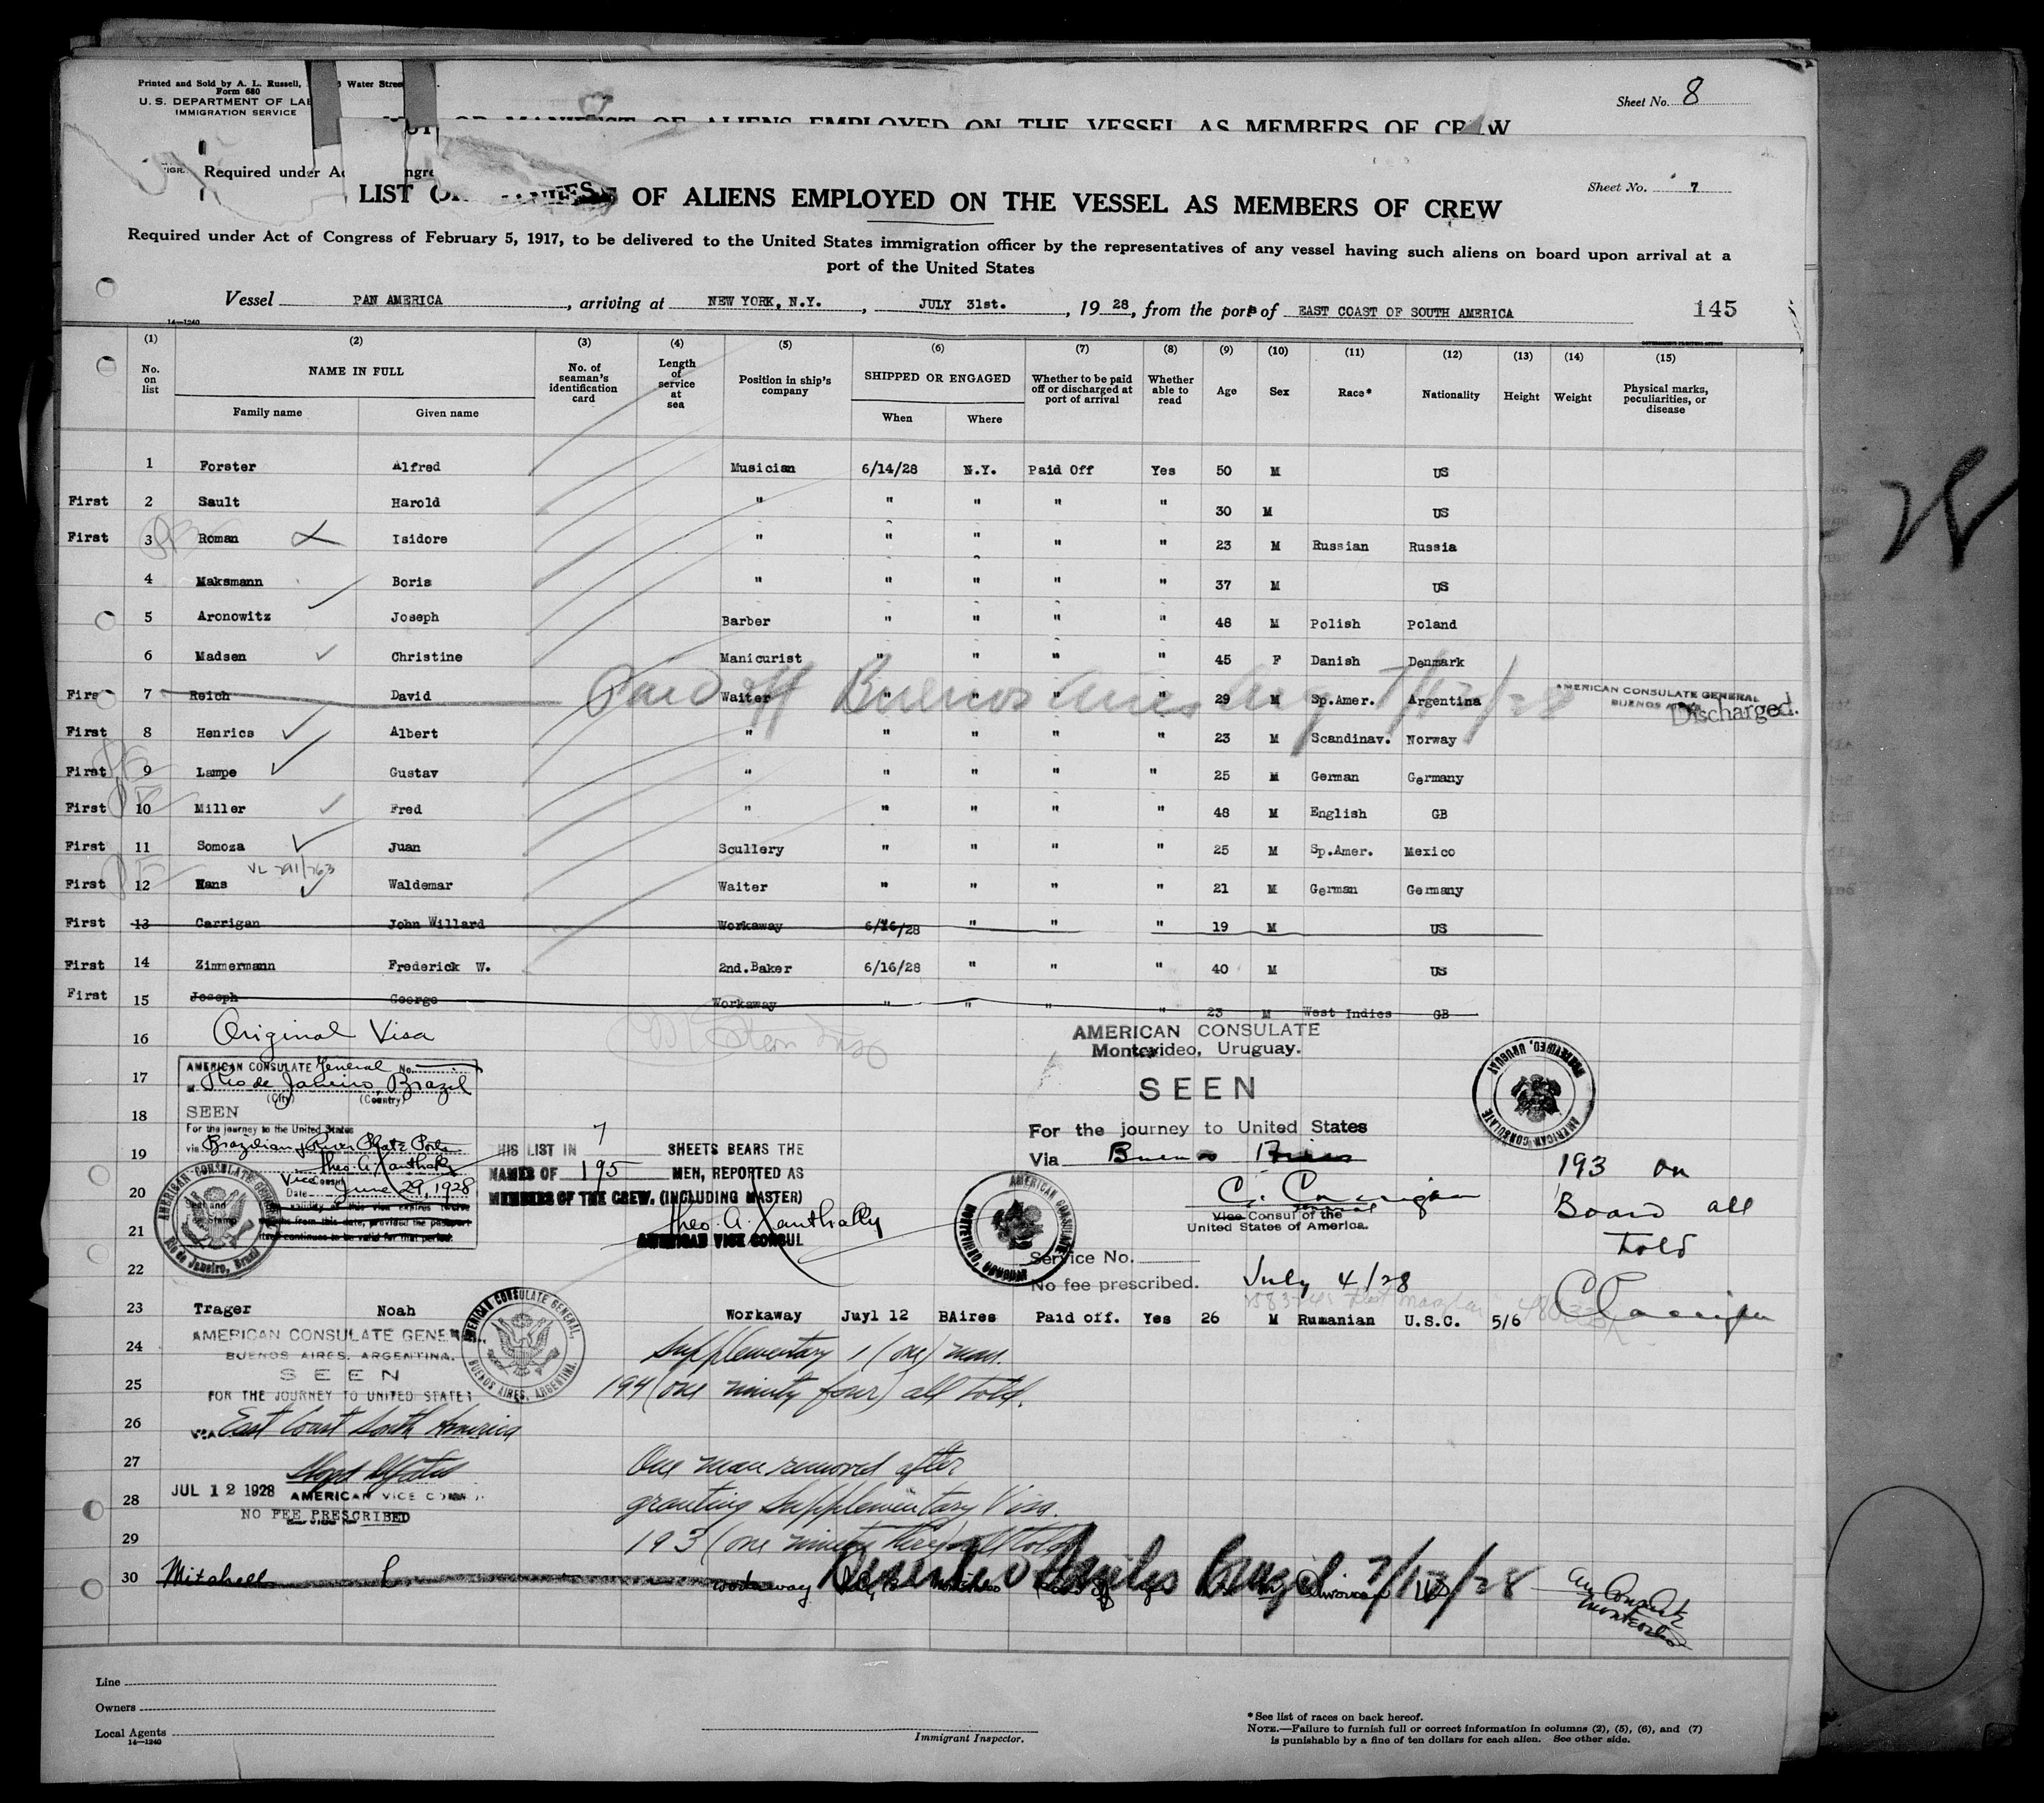 Printed and Sold by A. L. Russell, Water Street
Form 680
U. S. DEPARTMENT OF LA
IMMIGRATION SERVICE
Sheet No. 8
OF ALIENS EMPLOYED ON THE VESSEL AS MEMBERS OF CREW
Required under Ac ngre
Sheet No. 7
LIST OF ALIENS EMPLOYED ON THE VESSEL AS MEMBERS OF CREW
Required under Act of Congress of February 5, 1917, to be delivered to the United States immigration officer by the representatives of any vessel having such aliens on board upon arrival at a
port of the United States
Vessel PAN AMERICA, arriving at NEW YORK, N.Y., JULY 31st., 1928, from the port of EAST COAST OF SOUTH AMERICA 145
14—1240
(1) (2) (3) (4) (5) (6) (7) (8) (9) (10) (11) (12) (13) (14) (15)
No. on list NAME IN FULL No. of seaman's identification card Length of service at sea Position in ship's company SHIPPED OR ENGAGED Whether to be paid off or discharged at port of arrival Whether able to read Age Sex Race* Nationality Height Weight Physical marks, peculiarities, or disease
Family name Given name When Where
1 Forster Alfred Musician 6/14/28 N.Y. Paid Off Yes 50 M US
First 2 Sault Harold " " " " " 30 M US
First 3 Roman Isidore " " " " " 23 M Russian Russia
4 Maksmann Boris " " " " " 37 M US
5 Aronowitz Joseph Barber " " " " 48 M Polish Poland
6 Madsen Christine Manicurist " " " " 45 F Danish Denmark
First 7 Reich David Waiter " " " " 29 M Sp.Amer. Argentina
Paid off Buenos Aires Arg 7/12/28
AMERICAN CONSULATE GENERAL
BUENOS AIRES
Discharged.
First 8 Henrics Albert " " " " " 23 M Scandinav. Norway
First 9 Lampe Gustav " " " " " 25 M German Germany
First 10 Miller Fred " " " " " 48 M English GB
First 11 Somoza Juan Scullery " " " " 25 M Sp.Amer. Mexico
VL 291/763
First 12 Hans Waldemar Waiter " " " " 21 M German Germany
First 13 Carrigan John Willard Workaway 6/16/28 " " " 19 M US
First 14 Zimmermann Frederick W. 2nd.Baker 6/16/28 " " " 40 M US
First 15 Joseph George Workaway " " " " 23 M West Indies GB
16 Original Visa
AMERICAN CONSULATE
Montevideo, Uruguay.
17 AMERICAN CONSULATE General No.
at Rio de Janeiro, Brazil
(City) (Country)
SEEN
18 SEEN
For the journey to the United States
via Brazilian & River Plate Ports
Theo. A. Xanthaky
Vice Consul
Date June 29, 1928
validity of this visa expires twelve
months from this date, provided the passport
itself continues to be valid for that period.
AMERICAN CONSULATE GENERAL
Rio de Janeiro, Brazil
19 HIS LIST IN 7 SHEETS BEARS THE
NAMES OF 195 MEN, REPORTED AS
20 MEMBERS OF THE CREW. (INCLUDING MASTER)
Theo. A. Xanthaky
21 AMERICAN VICE CONSUL
For the journey to United States
Via Buenos Aires
Vice Consul of the
United States of America.
AMERICAN CONSULATE
MONTEVIDEO, URUGUAY
AMERICAN CONSULATE
MONTEVIDEO, URUGUAY
193 on
Board all
told
22 Service No.
No fee prescribed. July 4/28
23 Trager Noah Workaway Juyl 12 BAires Paid off. Yes 26 M Rumanian U.S.C. 5/6
AMERICAN CONSULATE GENERAL,
BUENOS AIRES, ARGENTINA.
AMERICAN CONSULATE GENERAL,
BUENOS AIRES, ARGENTINA.
24 SEEN
Supplementary 1 (one) man.
25 FOR THE JOURNEY TO UNITED STATES
194 (one ninety four) all told.
26 VIA East Coast South America
27 One man removed after
JUL 12 1928 AMERICAN VICE CONSUL
28 granting Supplementary Visa.
NO FEE PRESCRIBED
29 193 (one ninety three) all told
30 Mitchell C. workaway Paid off US
Deserted Santos Brazil 7/15/28
Am Consulate
Montevideo
Line
Owners
Local Agents
14—1240
Immigrant Inspector.
*See list of races on back hereof.
NOTE.—Failure to furnish full or correct information in columns (2), (5), (6), and (7)
is punishable by a fine of ten dollars for each alien. See other side.